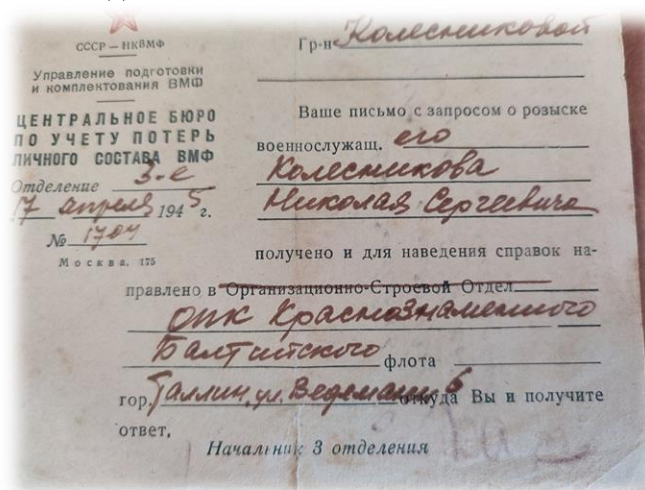 СССР – НКВМФ
Управление подготовки
и комплектования ВМФ
ЦЕНТРАЛЬНОЕ БЮРО
ПО УЧЕТУ ПОТЕРЬ
ЛИЧНОГО СОСТАВА ВМФ
Отделение 3-е
17 апреля 1945 г.
№ 1704
Москва, 175
Гр-н Колесниковой
Ваше письмо с запросом о розыске
военнослужащ. его
Колесникова
Николая Сергеевича
получено и для наведения справок на-
правлено в Организационно-Строевой Отдел
ОПК Краснознаменного
Балтийского флота
гор. Таллин, ул. 6 откуда Вы и получите
ответ,
Начальник 3 отделения